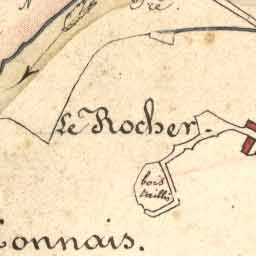 Le Rocher.
bois
taillis
onnais.